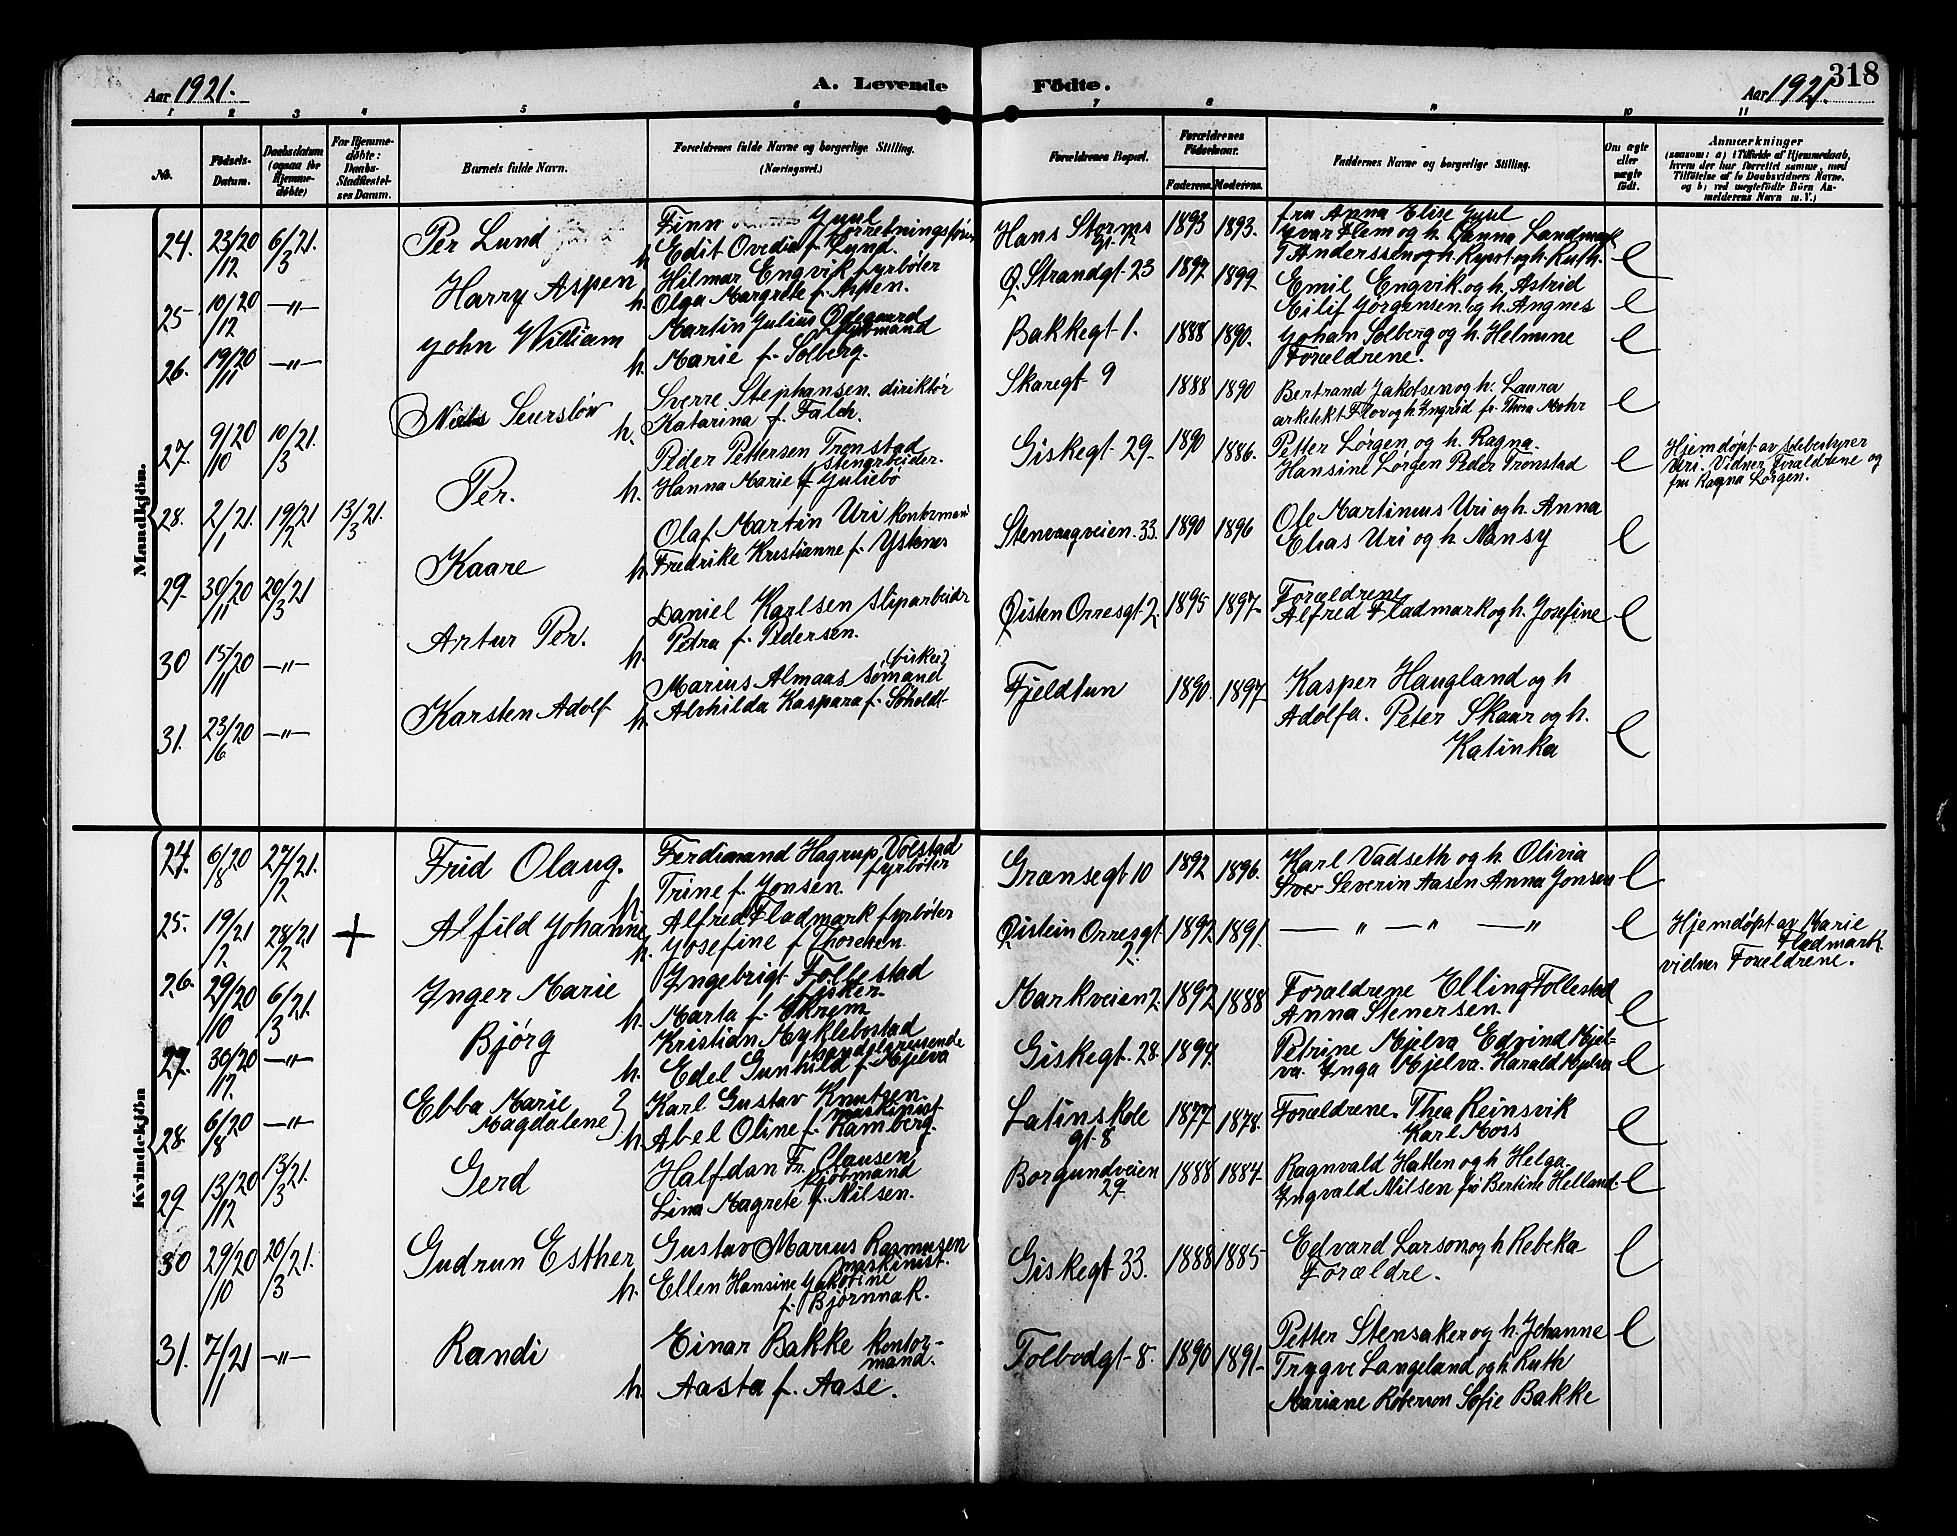 318
Aar 1921.
A. Levende Födte.
Aar 1921.
1 2 3 4 5 6 7 8 9 10 11
No.
Födsels-Datum.
Daabsdatum (ogsaa for Hjemme-döbte)
For Hjemme-döbte: Daabs-Stadfæstel-ses Datum.
Barnets fulde Navn.
Forældrenes fulde Navne og borgerlige Stilling. (Næringsvei.)
Forældrenes Bopæl.
Forældrenes Födselsaar.
Faderens. Moderens.
Faddernes Navne og borgerlige Stilling.
Om ægte eller uægte födt.
Anmærkninger
(saasom: a) i Tilfælde af Hjemmedaab, hvem der har forrettet samme, med Tilföielse af to Daabsvidners Navne, og b) ved uægtefödte Börn An-melderens Navn m. V.)
Mandkjön.
24. 23/12 20 6/3 21. Per Lund
Finn Juul forretningsfører
h. Edit Ovedia f. Lund.
Hans Storms gt. 12 1893 1893.
fru Anna Elise Juul
Yvar Flem og h. Hanna Landmark
T Anderssen og h. Ryort og h. Ruth. e
25 10/12 20 —"— Harry Aspen
Hilmar Engvik fyrbøter
h. Olga Margrete f. Aspen.
Ø. Strandgt. 23 1897 1899.
Emil Engvik og h. Astrid
Eilif Jørgensen og h. Angnes e
26. 19/11 20 —"— John William
Martin Julius Ødegaard
fyrbmand
h. Marie f. Solberg.
Bakkegt 1. 1888 1890.
Johan Solberg og h. Helmine
Forældrene. e
27. 9/10 20 10/3 21. Niels Seursløv
Sverre Stephansen. direktør
h. Katarina f. Falch.
Skaregt 9 1888 1890
Bertrand Jakobsen og h. Laura
arkitekt Flov og h Ingrid fr. Thora Mohr e
28. 2/1 21. 19/2 21 13/3 21. Per.
Peder Pettersen Tronstad
stenarbeider.
h. Hanna Marie f Juliebø
Giskegt 29 1890 1886.
Petter Lørgen og h. Ragna.
Hansine Lørgen Peder Tronstad e
Hjemdøpt av
Uri. Vidner Foraldrene og
fru Ragna Lørgen.
29. 30/11 20 20/3 21 Kaare
Olaf Martin Uri kontormand
h. Fredrike Kristianne f. Ystenes
Stenvaagveien. 33. 1890 1896
Ole Martinius Uri og h. Anna
Elias Uri og h. Nansy e
30 15/11 20 —"— Artur Per.
Daniel Karlsen sliparbeider
h. Petra f. Pedersen.
Øisten Orresgt. 2. 1895 1897
Forældrene
Alfred Fladmark og h. Josefine e
31. 23/6 20 —"— Karsten Adolf
Marius Almaas sømand (fisker)
h. Alvhilda Kaspara f. Søholdt
Fjeldtun 1890. 1897
Kasper Haugland og h
Adolfa. Peter Skaar og h.
Katinka e
Kvindekjön
24. 6/8 20 27/2 21. Frid Olaug.
Ferdinand Hagrup Volstad
fyrbøter
h. Trine f. Jonsen.
Grænsegt 10 1892 1896.
Karl Vadseth og h. Olivia
Severin Aasen Anna Jonsen e
25. 19/2 21 28/2 21 + Alfild Johanne
Alfred Fladmark fyrbøter
h. Josefine f
Øistein Orresgt 2. 1892 1891.
— " — " — " e
Hjemdøpt av Marie
Fladmark.
vidner Forældrene.
26. 29/10 20 6/3 21. Inger Marie
Ingebrigt Follestad
fisker.
h. Marta f. Ekrem
Markveien 7. 1892 1888
Foraldrene Elling Follestad
Anna Stenersen. e
27. 30/12 20 —"— Bjørg
Kristian Myklebostad
handelsreisende
h. Edel Gunhild f. Mjelva
Giskegt. 28. 1894.
Petrine Mjelva Edvind Mjel-
va. Inga Mjelva. Harald Mjelva e
28. 6/8 20 —"— Ebba Marie Magdalene
Karl Gustav Knutsen.
maskinist
h. Abel Oline f. Ramberg.
Latinskole gt. 8 1877 1878.
Forældrene. Thea Reinsvik
Karl Moss e
29. 13/12 20 13/3 21. Gerd
Halfdan Fr. Clausen
kjøbmand
Lina Magrete f. Nilsen.
Borgundveien 29 1888 1884.
Ragnvald Hatlen og h Helga.
Ingvald Nilsen frø Bertine Helland e
30 29/10 20 20/3 21. Gudrun Esther
Gustav Marius Rasmusen
maskinist.
h. Ellen Hansine Jakobine
f. Bjørnnak.
Giskegt 33. 1888 1885
Edvard Larson og h Rebeka
Forældre. e
31. 7/1 21 —"— Randi
Einar Bakke kontor-
mand.
h. Aasta f. Aase.
Tolbodgt 8. 1890 1891
Petter Stensaker og h. Johanne e
Trygve Langeland og h Ruth
Mariane Roberson Sofie Bakke